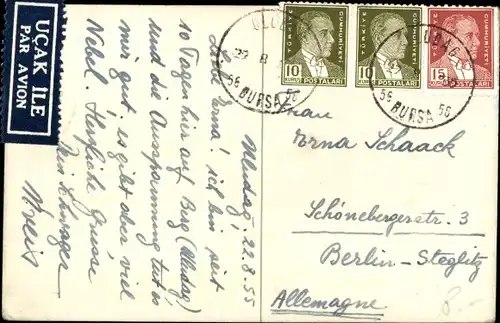 UÇAK İLE
PAR AVION
Uludag, 22.8.55
Liebe Erna! ich bin seit
10 Tagen hier auf Berg (Uludag)
und die Ausspannung tut es
mir gut. es gibt aber viel
Nebel. Herzliche Grüsse
Dein Schwager
TÜRKİYE CUMHURİYETİ
10 KURUŞ POSTALARI
TÜRKİYE CUMHURİYETİ
10 KURUŞ POSTALARI
TÜRKİYE CUMHURİYETİ
15 KURUŞ POSTALARI
56 BURSA 56
56 BURSA 56
Frau
Erna Schaack
Schönebergerstr. 3
Berlin-Steglitz
Allemagne
8.-